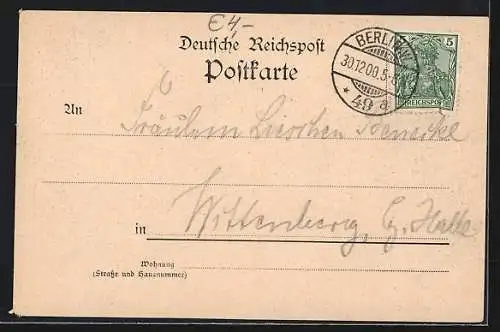 €4,-
Deutsche Reichspost
Postkarte
BERLIN
30.12.00.5-
* 49 a
5
REICHSPOST
An
Fräulein Lieschen Benecke
in Wittenberg, Bz. Halle
Wohnung
(Straße und Hausnummer)